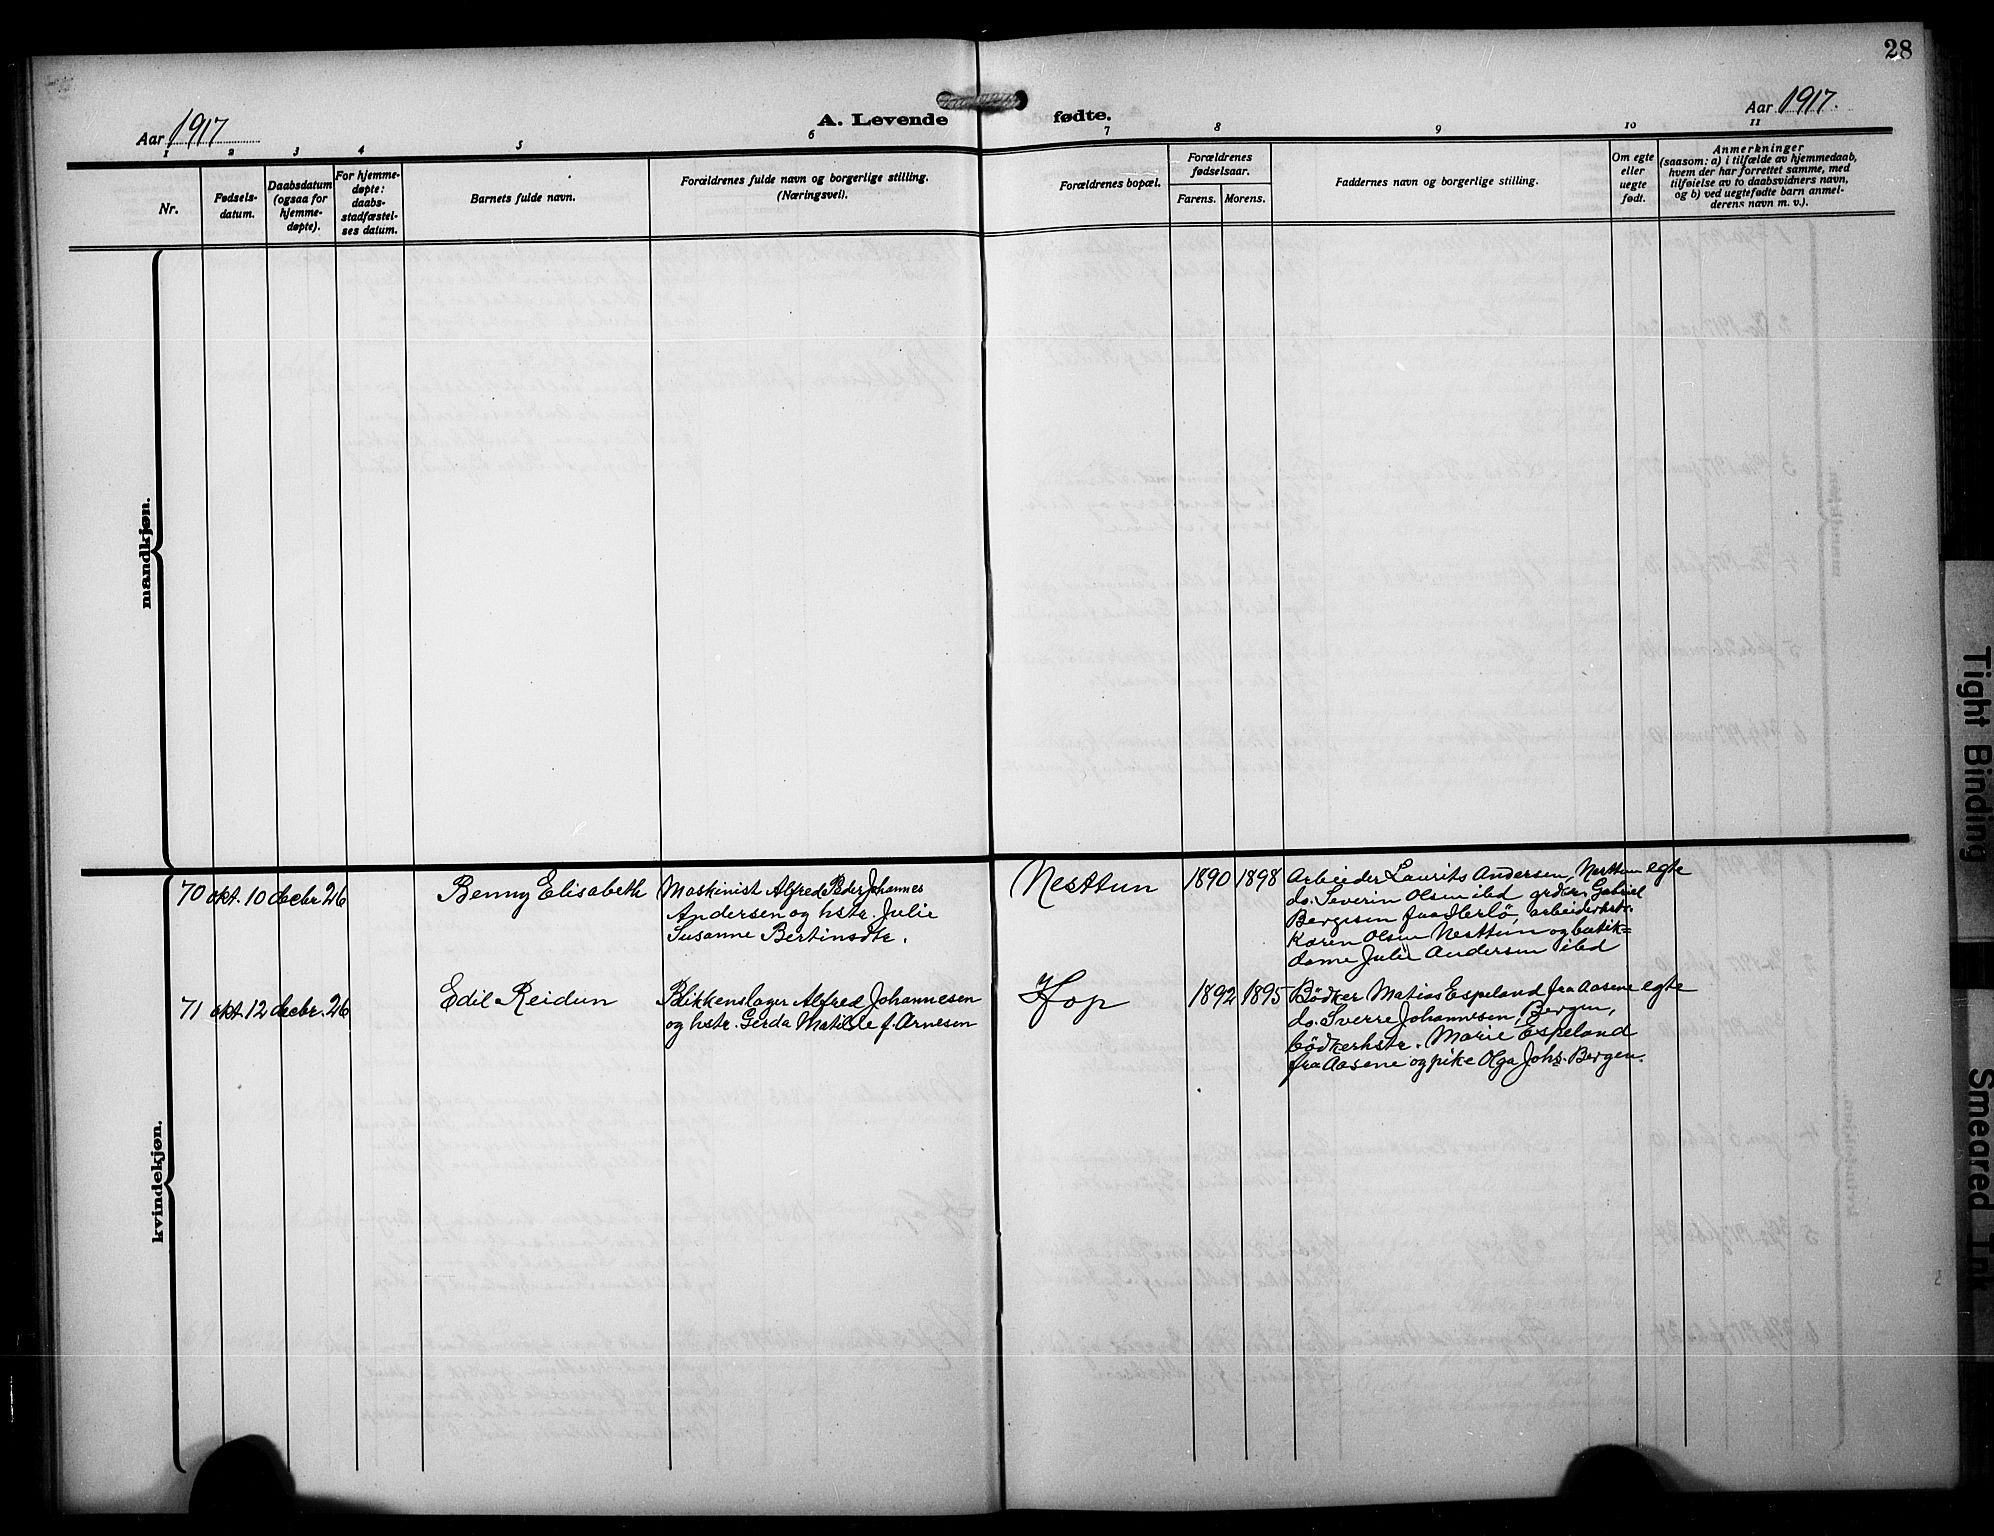 28
Aar 1917
A. Levende fødte.
Aar 1917.
1 2 3 4 5 6 7 8 9 10 11
Nr.
Fødsels-
datum.
Daabsdatum
(ogsaa for
hjemme-
døpte).
For hjemme-
døpte:
daabs-
stadfæstel-
ses datum.
Barnets fulde navn.
Forældrenes fulde navn og borgerlige stilling.
(Næringsvei).
Forældrenes bopæl.
Forældrenes
fødselsaar.
Farens. Morens.
Faddernes navn og borgerlige stilling.
Om egte
eller
uegte
født.
Anmerkninger
(saasom: a) i tilfælde av hjemmedaab,
hvem der har forrettet samme, med
tilføielse av to daabsvidners navn,
og b) ved uegtefødte barn anmel-
derens navn m. v.).
mandkjøn.
kvindekjøn.
70 okt. 10 decbr. 26 Benny Elisabeth Maskinist Alfred Peder Johannes
Andersen og hstr. Julie
Susanne Bertinsdtr.
Nesttun 1890 1898 Arbeider Laurits Andersen, Nesttun egte
do. Severin Olsen ibd grdkr. Gabriel
Bergesen fra Herlö, arbeiderhstr.
Karen Olsen Nesttun og butik=
dame Julie Andersen ibd
71 okt. 12 decbr. 26 Edil Reidun Blikkenslager Alfred Johannesen
og hstr. Gerda Matilde f. Arnesen
Hop 1892 1895 Bödker Matias Espeland fra Aasene egte
do. Sverre Johannesen, Bergen,
bödkerhstr. Marie Espeland
fra Aasene og pike Olga Johs. Bergen.
Tight Binding
Smeared Ink